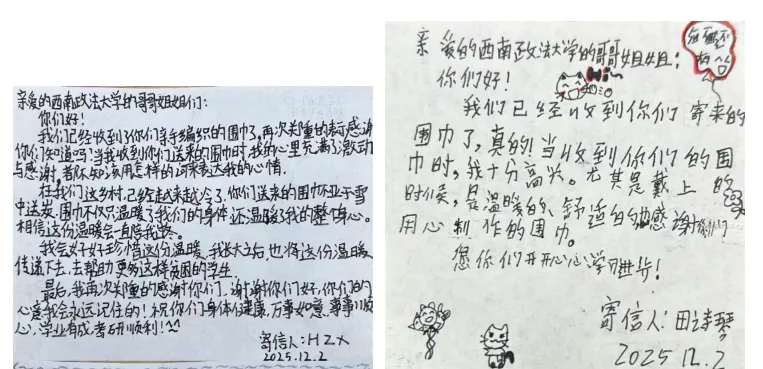 亲爱的西南政法大学的哥哥姐姐们:
你们好!
我们已经收到了你们亲手编织的围巾了,再次关隆的表示感谢
你们知道吗?当我收到你们送来的围巾时,我的心里充满了激动
与感谢,都不知该用怎样的词来表达我的心情。
在我们这乡村,已经越来越冷了,你们送来的围巾亦亚于雪
中送炭。围巾不仅只温暖了我们的身体,还温暖了我的整个身心。
相信这份温暖会一直陪我
我会好好珍惜这份温暖,我长大后,也将这份温暖
传递下去,去帮助更多这样贫困的学生
最后,我再次关隆的感谢你们,谢谢你们好,你们的
心意我会永远记住的!祝你们身体健康,万事如意,事事顺
心,学业有成,考研顺利!^^
寄信人:HZX
2025.12.2
亲爱的西南政法大学的哥哥姐姐:
你们好!
Hi~
我们已经收到你们寄来的
围巾了,真的!当收到你们的围
巾时,我十分高兴。尤其是戴上的
时候,是温暖的、舒适的,感谢你们
用心制作的围巾。
愿你们开开心心,学习进步!
寄信人:田诗琴
2025 12.2